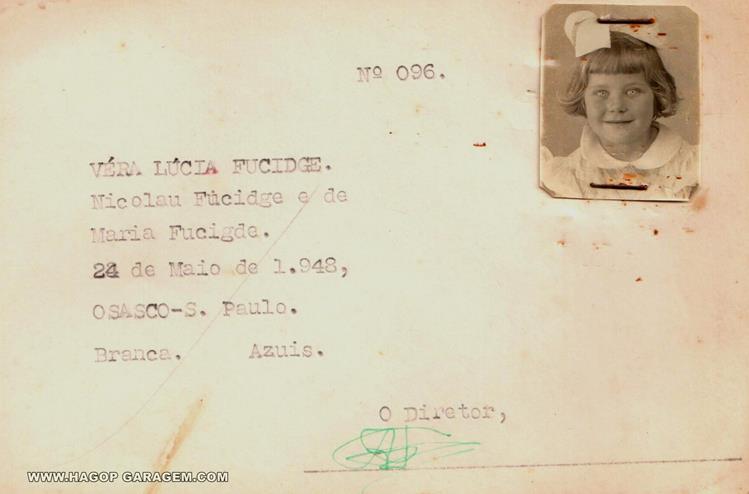 Nº 096.
VÉRA LÚCIA FUCIDGE.
Nicolau Fúcidge e de
Maria Fucigde.
24 de Maio de 1.948,
OSASCO-S. Paulo.
Branca. Azuis.
O Diretor,
WWW.HAGOP GARAGEM.COM